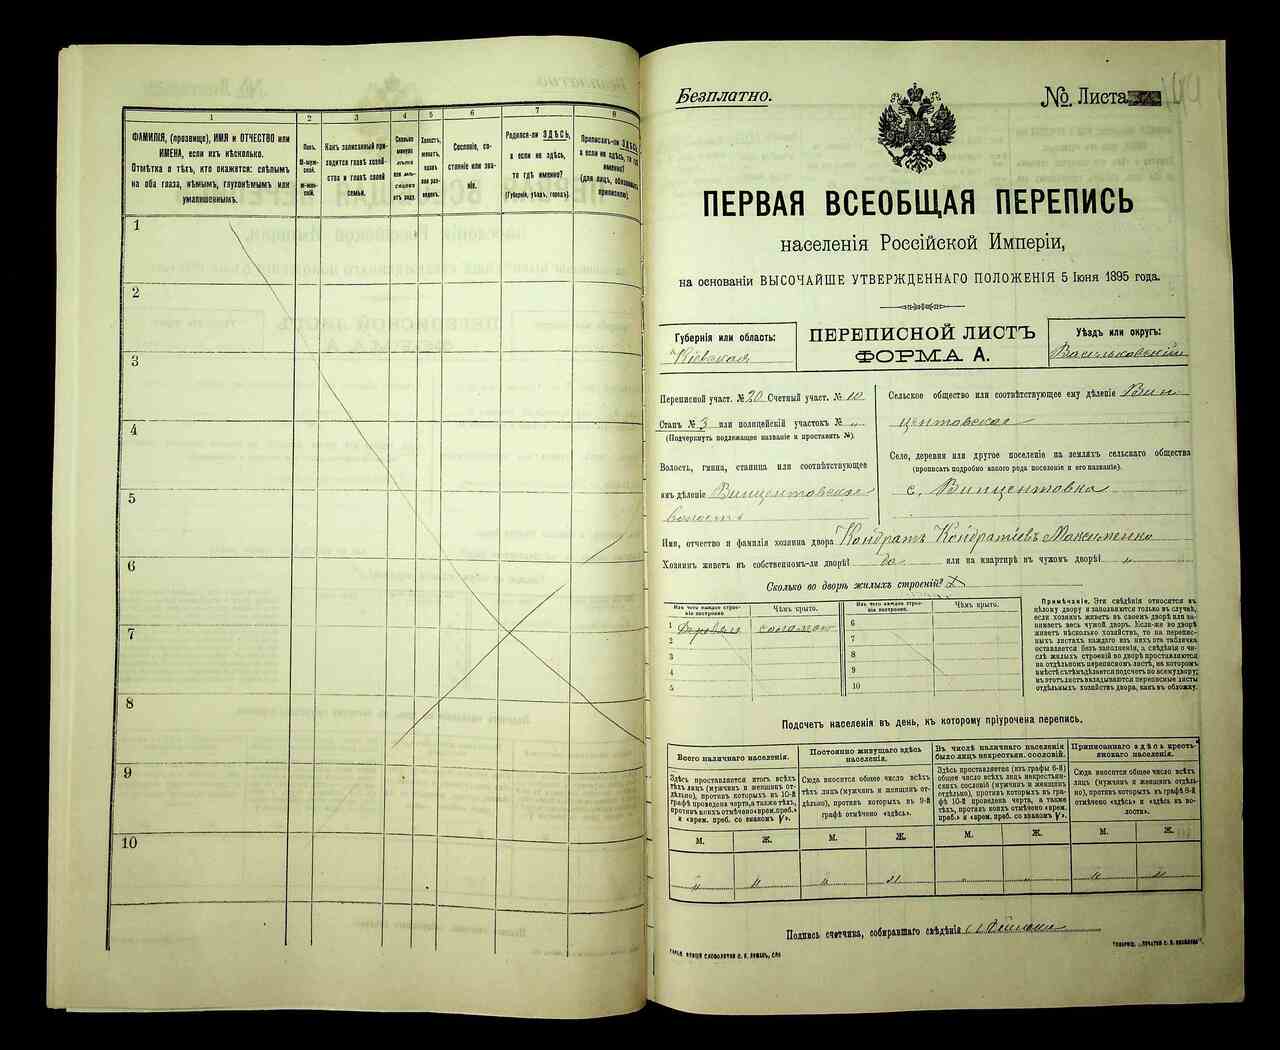 1
2
3
4
5
6
7
8
ФАМИЛІЯ, (прозвище), ИМЯ и ОТЧЕСТВО или
ИМЕНА, если ихъ нѣсколько.
Отмѣтка о тѣхъ, кто окажется: слѣпымъ
на оба глаза, нѣмымъ, глухонѣмымъ или
умалишеннымъ.
Полъ.
М-муж-
ской.
Ж-жен-
скій.
Какъ записанный при-
ходится главѣ хозяй-
ства и главѣ своей
семьи.
Сколько
минуло
лѣтъ
или мѣ-
сяцевъ
отъ роду.
Холостъ,
женатъ,
вдовъ
или раз-
веденъ.
Сословіе, со-
стояніе или зва-
ніе.
Родился-ли ЗДѢСЬ,
а если не здѣсь,
то гдѣ именно?
(Губернія, уѣздъ, городъ).
Приписанъ-ли ЗДѢСЬ,
а если не здѣсь, то гдѣ
именно?
(для лицъ, обязанныхъ
припискою).
1
2
3
4
5
6
7
8
9
10
Безплатно.
№ Листа
ПЕРВАЯ ВСЕОБЩАЯ ПЕРЕПИСЬ
населенія Россійской Имперіи,
на основаніи ВЫСОЧАЙШЕ УТВЕРЖДЕННАГО ПОЛОЖЕНІЯ 5 Іюня 1895 года.
Губернія или область:
Кіевская
ПЕРЕПИСНОЙ ЛИСТЪ
ФОРМА А.
Уѣздъ или округъ:
Васильковскій
Переписной участ. № 20 Счетный участ. № 10
Станъ № 3 или полицейскій участокъ № „
(Подчеркнуть подлежащее названіе и проставить №).
Волость, гмина, станица или соотвѣтствующее
имъ дѣленіе Винцентовская
волость
Сельское общество или соотвѣтствующее ему дѣленіе Вин
центовское
Село, деревня или другое поселеніе на земляхъ сельскаго общества
(прописать подробно какого рода поселеніе и его названіе).
с. Винцентовка
Имя, отчество и фамилія хозяина двора Кондратъ Кондратіевъ Максименко
Хозяинъ живетъ въ собственномъ-ли дворѣ? да или на квартирѣ въ чужомъ дворѣ? „
Сколько во дворѣ жилыхъ строеній? 1
Изъ чего каждое строе-
ніе построено.
Чѣмъ крыто.
Изъ чего каждое строе-
ніе построено.
Чѣмъ крыто.
1 соломою
2
3
4
5
6
7
8
9
10
Примѣчаніе. Эти свѣдѣнія относятся къ
цѣлому двору и заполняются только въ случаѣ,
если хозяинъ живетъ въ своемъ дворѣ или за-
нимаетъ весь чужой дворъ. Если-же во дворѣ
живетъ нѣсколько хозяйствъ, то на перепис-
ныхъ листахъ каждаго изъ нихъ эта табличка
оставляется безъ заполненія, а свѣдѣнія о чи-
слѣ жилыхъ строеній во дворѣ проставляются
на отдѣльномъ переписномъ листѣ, на которомъ
вмѣстѣ съ тѣмъ дѣлается подсчетъ по всему двору;
въ этотъ листъ вкладываются переписные листы
отдѣльныхъ хозяйствъ двора, какъ въ обложку.
Подсчетъ населенія въ день, къ которому пріурочена перепись.
Всего наличнаго населенія.
Постоянно живущаго здѣсь
населенія.
Въ числѣ наличнаго населенія
было лицъ некрестьян. сословій.
Приписаннаго здѣсь кресть-
янскаго населенія.
Здѣсь проставляется итогъ всѣхъ
тѣхъ лицъ (мужчинъ и женщинъ от-
дѣльно), противъ которыхъ въ 10-й
графѣ проведена черта, а также тѣхъ,
противъ коихъ отмѣчено «врем. преб.»
и «врем. преб. со знакомъ V».
Сюда вносится общее число всѣхъ
тѣхъ лицъ (мужчинъ и женщинъ от-
дѣльно), противъ которыхъ въ 9-й
графѣ отмѣчено «здѣсь».
Здѣсь проставляется (изъ графы 6-й)
общее число всѣхъ лицъ некрестьян-
скихъ сословій (мужчинъ и женщинъ
отдѣльно), противъ которыхъ въ гра-
фѣ 10-й проведена черта, а также
тѣхъ, противъ коихъ отмѣчено «врем.
преб.» и «врем. преб. со знакомъ V».
Сюда вносится общее число всѣхъ
лицъ (мужчинъ и женщинъ отдѣль-
но), противъ которыхъ въ графѣ 8-й
отмѣчено «здѣсь» и «здѣсь въ во-
лости».
М.
Ж.
М.
Ж.
М.
Ж.
М.
Ж.
„ „ „ „ „ „ „ „
Подпись счетчика, собиравшаго свѣдѣнія